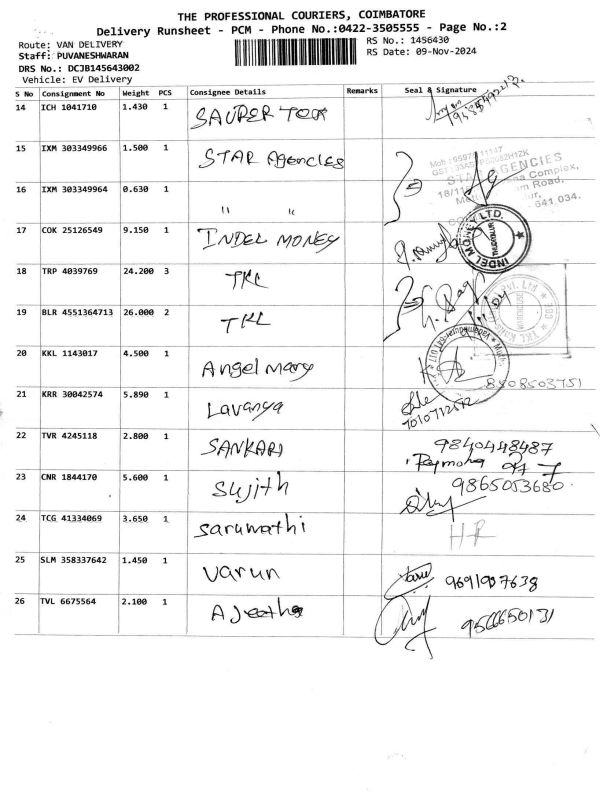 THE PROFESSIONAL COURIERS, COIMBATORE
Delivery Runsheet - PCM - Phone No.:0422-3505555 - Page No.:2
Route: VAN DELIVERY
RS No.: 1456430
Staff: PUVANESHWARAN
RS Date: 09-Nov-2024
DRS No.: DCJB145643002
Vehicle: EV Delivery
S No Consignment No Weight PCS Consignee Details Remarks Seal & Signature
14 ICH 1041710 1.430 1 SAURER
15 IXM 303349966 1.500 1 STAR Agencies
16 IXM 303349964 0.630 1 " "
17 COK 25126549 9.150 1 INDEL MONEY
INDEL MONEY LTD.
18 TRP 4039769 24.200 3 TKL
19 BLR 4551364713 26.000 2 TKL
20 KKL 1143017 4.500 1 Angel mary
8508503751
21 KRR 30042574 5.890 1 Lavanya
22 TVR 4245118 2.800 1 SANKARI 9840448487
23 CNR 1844170 5.600 1 Sujith 9865053680
24 TCG 41334069 3.650 1 saruwathi HR
25 SLM 358337642 1.450 1 varun 9691907638
26 TVL 6675564 2.100 1 AJeetha 9566650131